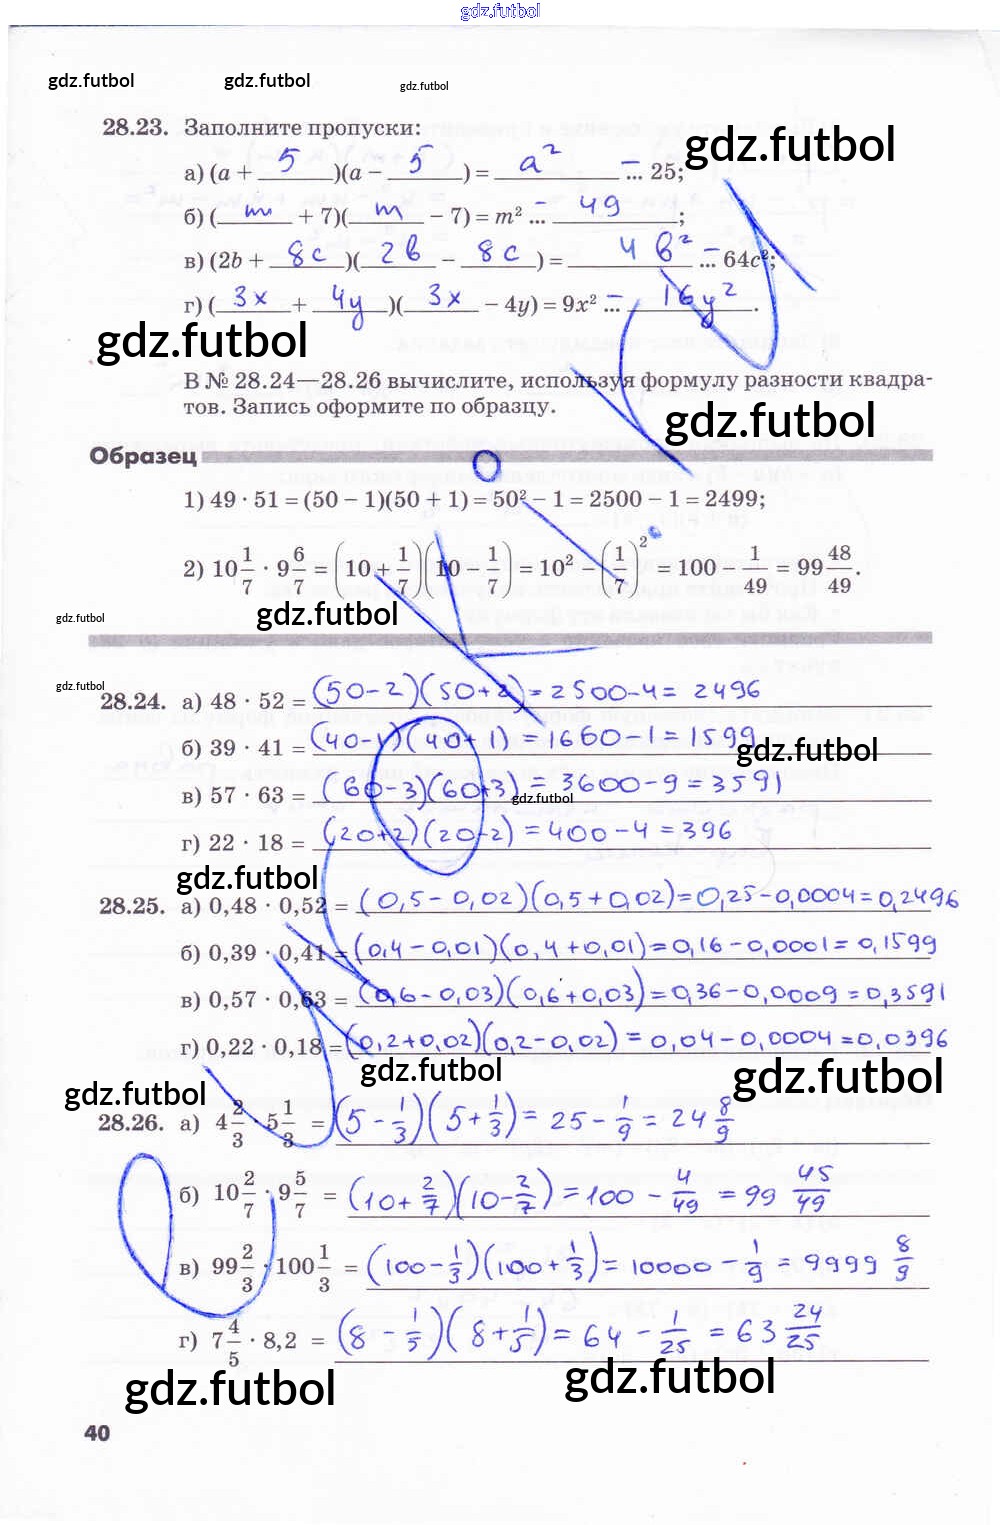 gdz.futbol
gdz.futbol gdz.futbol gdz.futbol
28.23. Заполните пропуски:
gdz.futbol
а) (a + 5)(a − 5) = a² − ... 25;
б) (m + 7)(m − 7) = m² − ... 49;
в) (2b + 8c)(2b − 8c) = 4b² − ... 64c²;
г) (3x + 4y)(3x − 4y) = 9x² − ... 16y².
gdz.futbol
В № 28.24—28.26 вычислите, используя формулу разности квадра-
тов. Запись оформите по образцу.
gdz.futbol
Образец
1) 49 · 51 = (50 − 1)(50 + 1) = 50² − 1 = 2500 − 1 = 2499;
2) 10 1/7 · 9 6/7 = (10 + 1/7)(10 − 1/7) = 10² − (1/7)² = 100 − 1/49 = 99 48/49.
gdz.futbol gdz.futbol
gdz.futbol
28.24. а) 48 · 52 = (50−2)(50+2) = 2500−4 = 2496
б) 39 · 41 = (40−1)(40+1) = 1600−1 = 1599
gdz.futbol
в) 57 · 63 = (60−3)(60+3) = 3600−9 = 3591
gdz.futbol
г) 22 · 18 = (20+2)(20−2) = 400−4 = 396
gdz.futbol
28.25. а) 0,48 · 0,52 = (0,5−0,02)(0,5+0,02)=0,25−0,0004=0,2496
б) 0,39 · 0,41 = (0,4−0,01)(0,4+0,01)=0,16−0,0001=0,1599
в) 0,57 · 0,63 = (0,6−0,03)(0,6+0,03)=0,36−0,0009=0,3591
г) 0,22 · 0,18 = (0,2+0,02)(0,2−0,02)=0,04−0,0004=0,0396
gdz.futbol gdz.futbol
gdz.futbol
28.26. а) 4 2/3 · 5 1/3 = (5 − 1/3)(5 + 1/3) = 25 − 1/9 = 24 8/9
б) 10 2/7 · 9 5/7 = (10 + 2/7)(10 − 2/7) = 100 − 4/49 = 99 45/49
в) 99 2/3 · 100 1/3 = (100 − 1/3)(100 + 1/3) = 10000 − 1/9 = 9999 8/9
г) 7 4/5 · 8,2 = (8 − 1/5)(8 + 1/5) = 64 − 1/25 = 63 24/25
gdz.futbol gdz.futbol
40